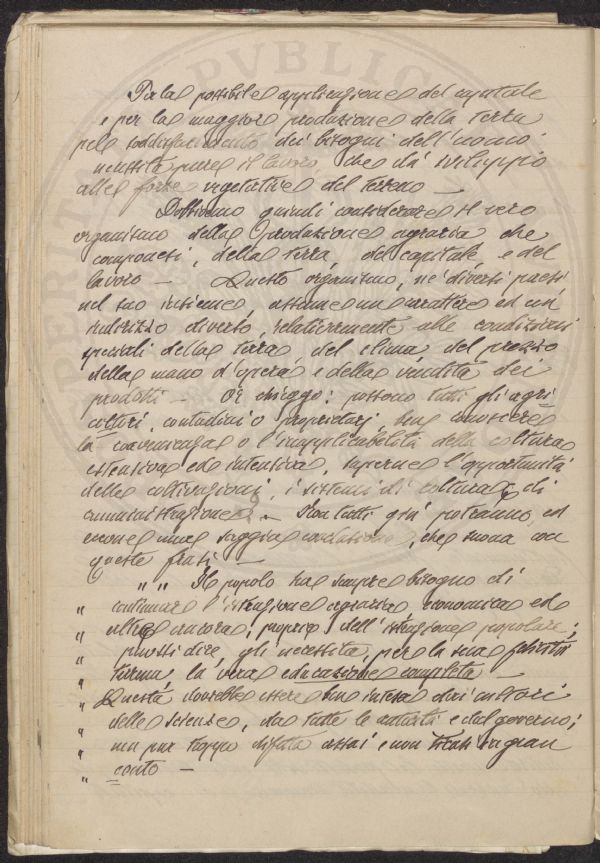 Per la possibile applicazione del capitale
e per la maggiore produzione della terra
pel soddisfacimento dei bisogni dell'uomo
necessita pure il lavoro, che dà sviluppio
alle forze vegetative del terreno —
Dobbiamo quindi considerare il vero
organismo della produzione agraria che
componesi, della terra, del capitale e del
lavoro — Questo organismo, ne' diversi paesi
nel suo insieme, assume un carattere ed un
indirizzo diverso, relativamente alle condizioni
speciali della terra, del clima del prezzo
della mano d'opera e della vendita dei
prodotti — Or chieggo: possono tutti gli agri
coltori, contadini o proprietarj, ben conoscere
la convenienza o l'inapplicabilità della coltura
estensiva ed intensiva, saperne l'opportunità
delle coltivazioni, i sistemi di coltura e di
amministrazione? — Non tutti già potranno, ed
eccone una saggia conclusione, che suona con
queste frasi —
" " Il popolo ha sempre bisogno di
" continuare l'istruzione agraria, economica ed
" altre ancora, proprio dell'istruzione popolare;
" puossi dire, gli necessita, per la sua
" la vera educazione completa —
" Questa dovrebbe essere ben intesa dai cultori
" delle scienze, da tutte le autorità e dal governo;
" ma pur troppo difetta assai e non tiensi in gran
" conto —
PVBLIC